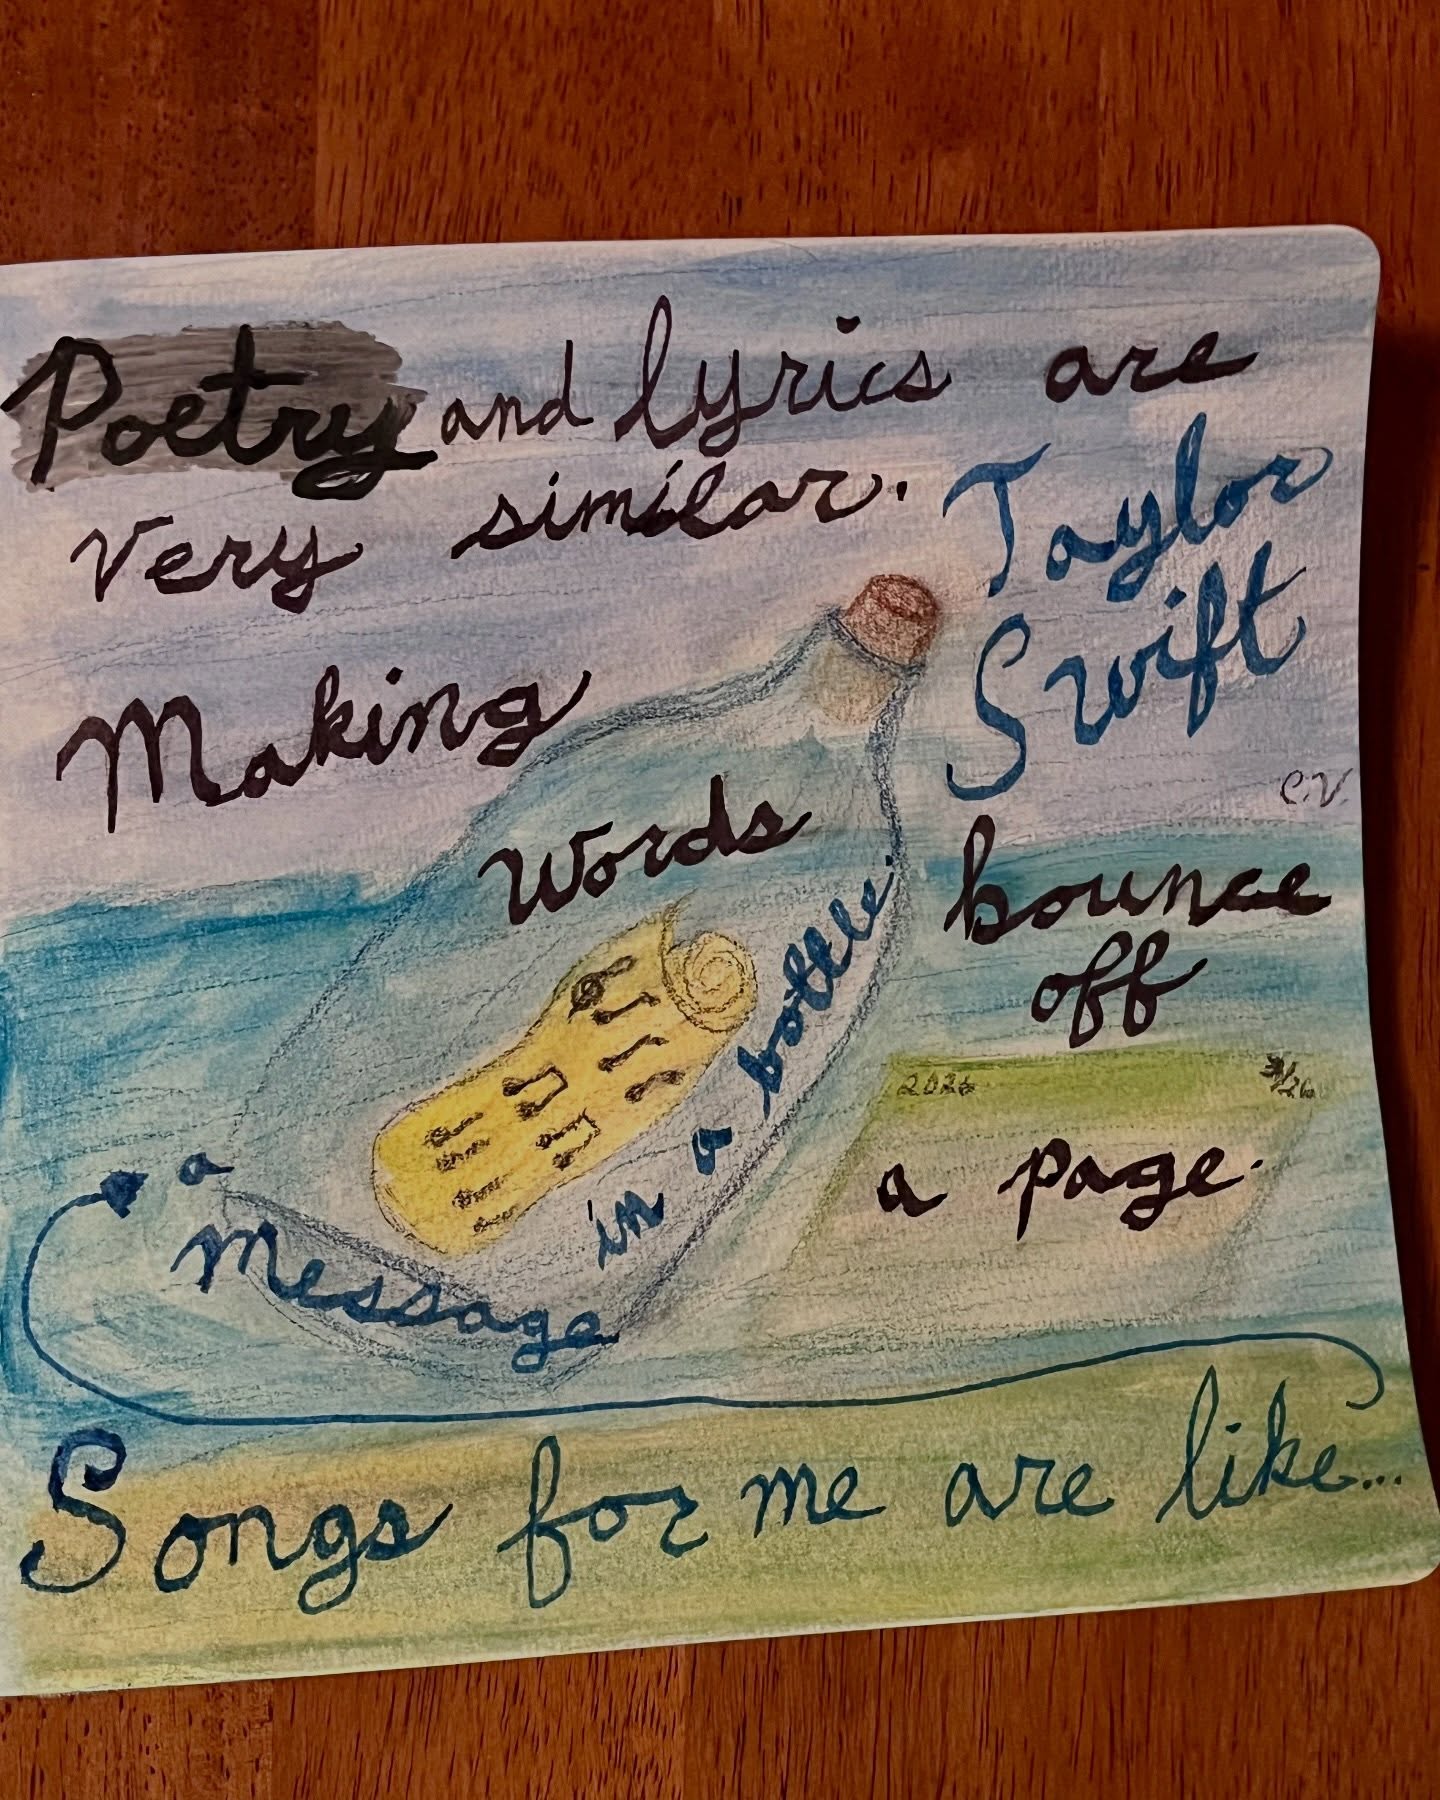 Poetry and lyrics are
very similar.
Making
Words
bounce
off
a page.
Taylor
Swift
c.v.
2026
Songs for me are like...
a
message
in a bottle.